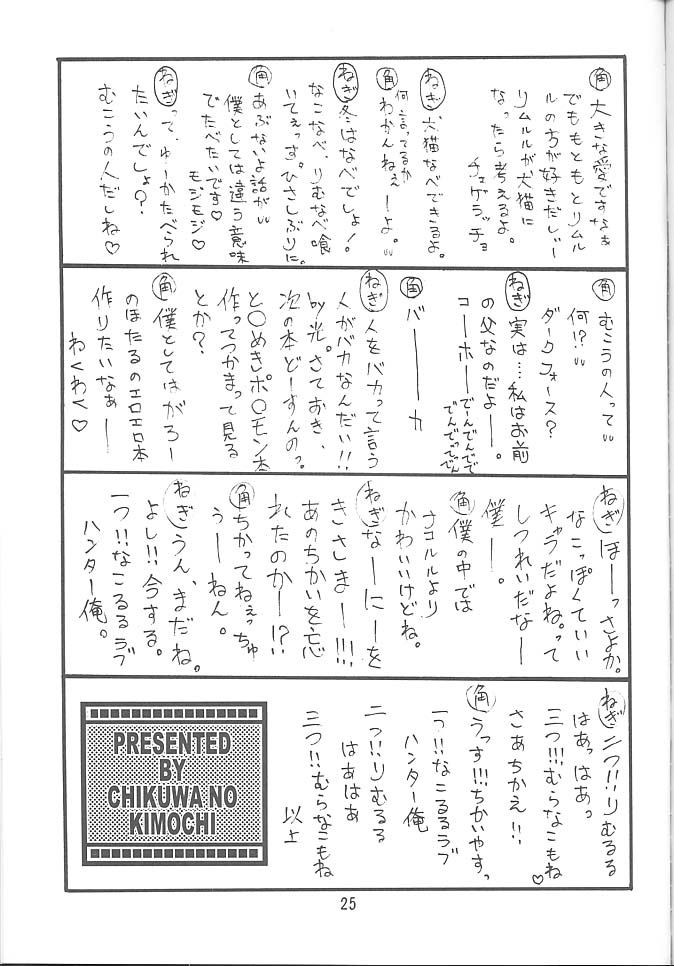 角 大きな愛ですなぁ
でももともとリムル
ルの方が好きだしー
リムルルが犬猫に
なったら考えるよ。
チェゲラッチョ
ねぎ 犬猫なべできるよ。
角 何言ってるか
わかんねぇーよ。
ねぎ 冬はなべでしょ!
なこなべ、りむなべ喰
いてぇっす。ひさしぶりに。
角 あぶないよ話が
僕としては違う意味
でたべたいです♡
モジモジ♡
ねぎ って、ゆーかたべられ
たいんでしょ?
むこうの人だしね♡
角 むこうの人って
何!?
ダークフォース?
ねぎ 実は…私はお前
の父なのだよー。
コーホーでーんでんでんで
でんでっでん
角 バーーーカ
ねぎ 人をバカって言う
人がバカなんだい!!
by光。さておき、
次の本どーすんの?
と〇めきポ〇モン本
作ってつかまって見る
とか?
角 僕としてはがろー
のほたるのエロエロ本
作りたいなぁー
わくわく♡
ねぎ ほーっさよか。
なこっぽくていい
キャラだよね。って
しつれいだなー
僕ー。
角 僕の中では
ナコルルより
かわいいけどね。
ねぎ なーにーを
きさしまー!!!
あのちかいを忘
れたのかー!?
角 ちかってねぇっちゅ
うーねん。
ねぎ うん、まだね。
よし!!今する。
一つ!!なこるるラブ
ハンター俺。
ねぎ 二つ!!りむるる
はあっはぁっ
三つ!!!むらなこもね♡
さあちかえ!!
角 うっす!!!ちかいやすっ
一っ!!なこるるラブ
ハンター俺
二っ!!りむるる
はあはあ
三つ!!むらなこもね
以上
PRESENTED
BY
CHIKUWA NO
KIMOCHI
25